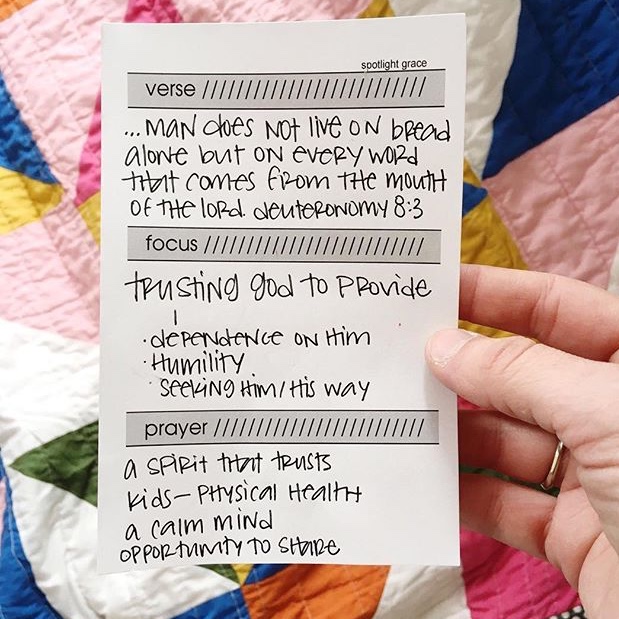 spotlight grace
verse //////////////////////////
...man does not live on bread
alone but on every word
that comes from the mouth
of the lord. deuteronomy 8:3
focus //////////////////////////
trusting god to provide
· dependence on Him
· Humility
· seeking Him/His way
prayer //////////////////////////
a spirit that trusts
kids- physical health
a calm mind
opportunity to share